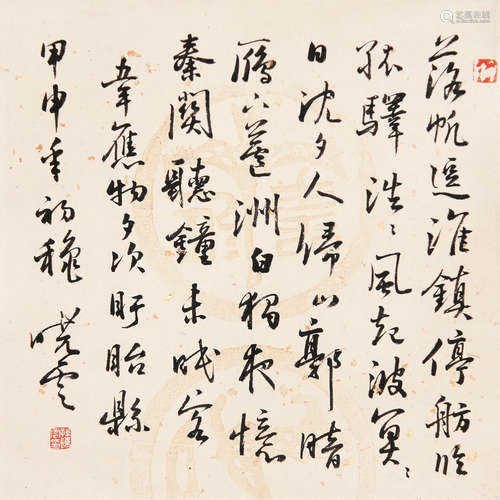 落帆逗淮鎮停舫临
孤驛浩〻風起波冥〻
日沈夕人歸山郭暗
雁下蘆洲白獨夜憶
秦關聽鐘未眠客
韋應物夕次盱眙縣
甲申年初穐 晓雲